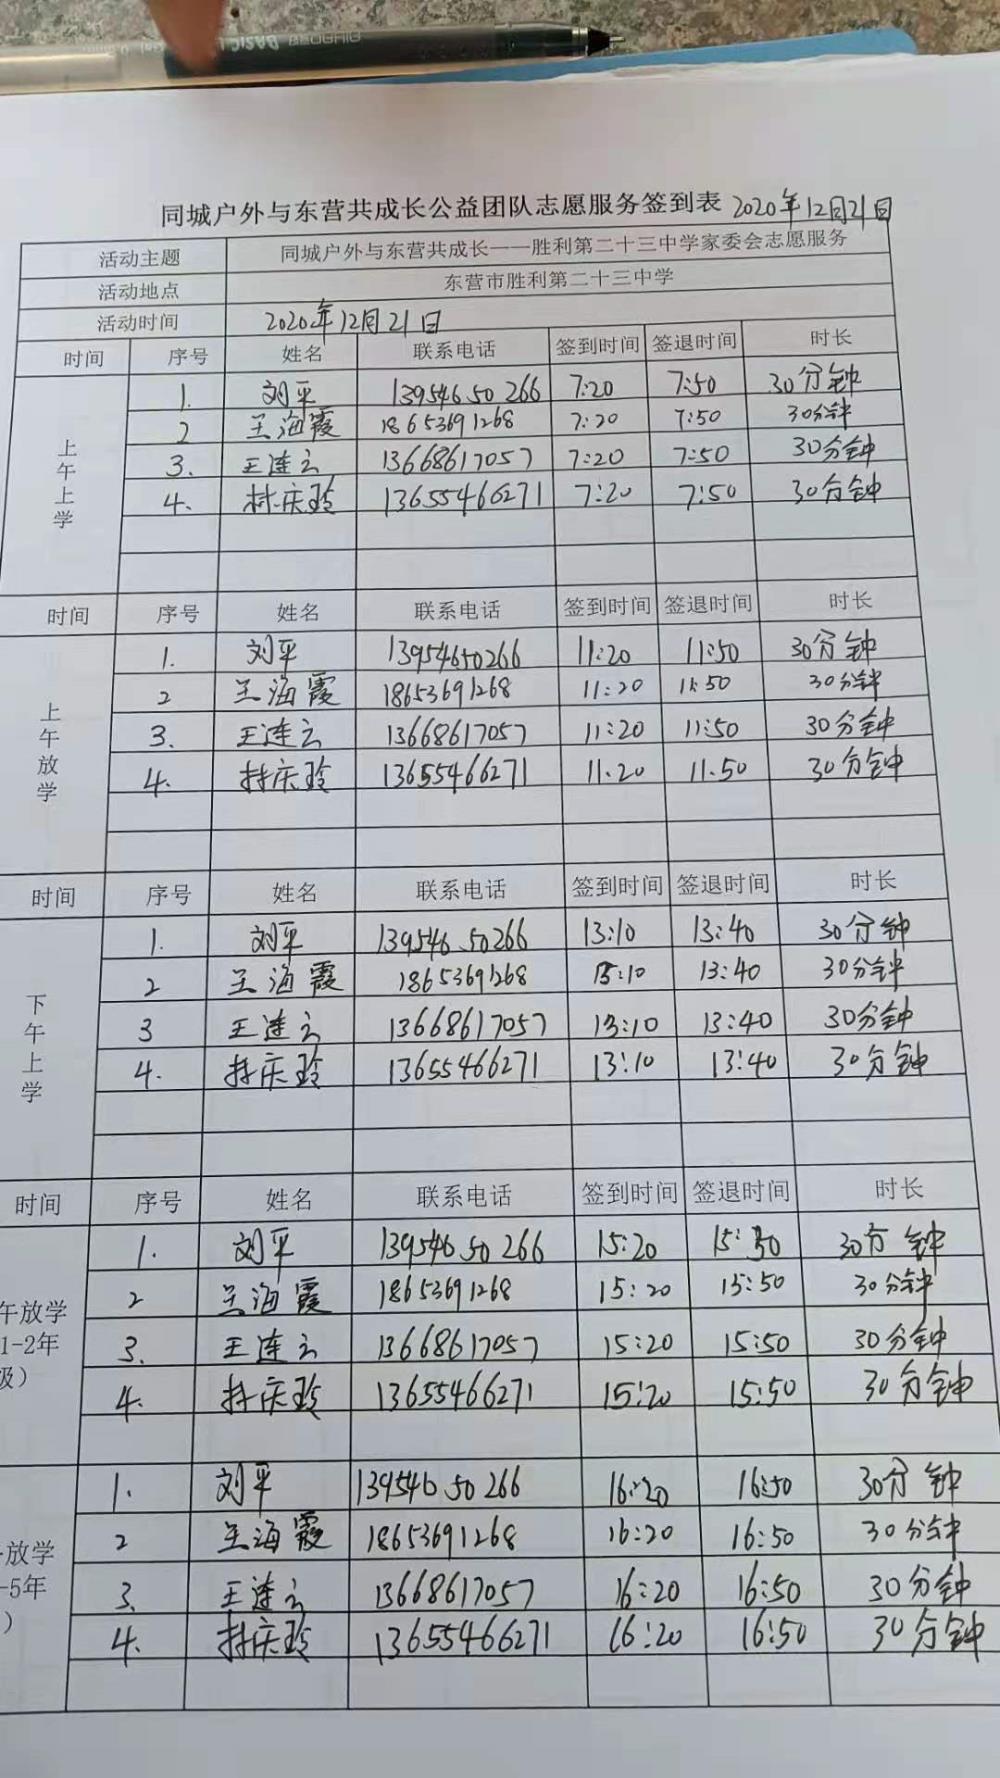 BASIC
同城户外与东营共成长公益团队志愿服务签到表 2020年12月21日
活动主题 同城户外与东营共成长——胜利第二十三中学家委会志愿服务
活动地点 东营市胜利第二十三中学
活动时间 2020年12月21日
时间 序号 姓名 联系电话 签到时间 签退时间 时长
上午上学
1. 刘平 13954650266 7:20 7:50 30分钟
2 王海霞 18653691268 7:20 7:50 30分钟
3. 王连云 13668617057 7:20 7:50 30分钟
4. 林庆玲 13655466271 7:20 7:50 30分钟
时间 序号 姓名 联系电话 签到时间 签退时间 时长
上午放学
1. 刘平 13954650266 11:20 11:50 30分钟
2 王海霞 18653691268 11:20 11:50 30分钟
3. 王连云 13668617057 11:20 11:50 30分钟
4. 林庆玲 13655466271 11.20 11.50 30分钟
时间 序号 姓名 联系电话 签到时间 签退时间 时长
下午上学
1. 刘平 13954650266 13:10 13:40 30分钟
2 王海霞 18653691268 13:10 13:40 30分钟
3 王连云 13668617057 13:10 13:40 30分钟
4. 林庆玲 13655466271 13:10 13:40 30分钟
时间 序号 姓名 联系电话 签到时间 签退时间 时长
午放学
1-2年
级）
1. 刘平 13954650266 15:20 15:50 30分钟
2 王海霞 18653691268 15:20 15:50 30分钟
3. 王连云 13668617057 15:20 15:50 30分钟
4. 林庆玲 13655466271 15:20 15:50 30分钟
放学
-5年
）
1. 刘平 13954650266 16:20 16:50 30分钟
2 王海霞 18653691268 16:20 16:50 30分钟
3. 王连云 13668617057 16:20 16:50 30分钟
4. 林庆玲 13655466271 16:20 16:50 30分钟